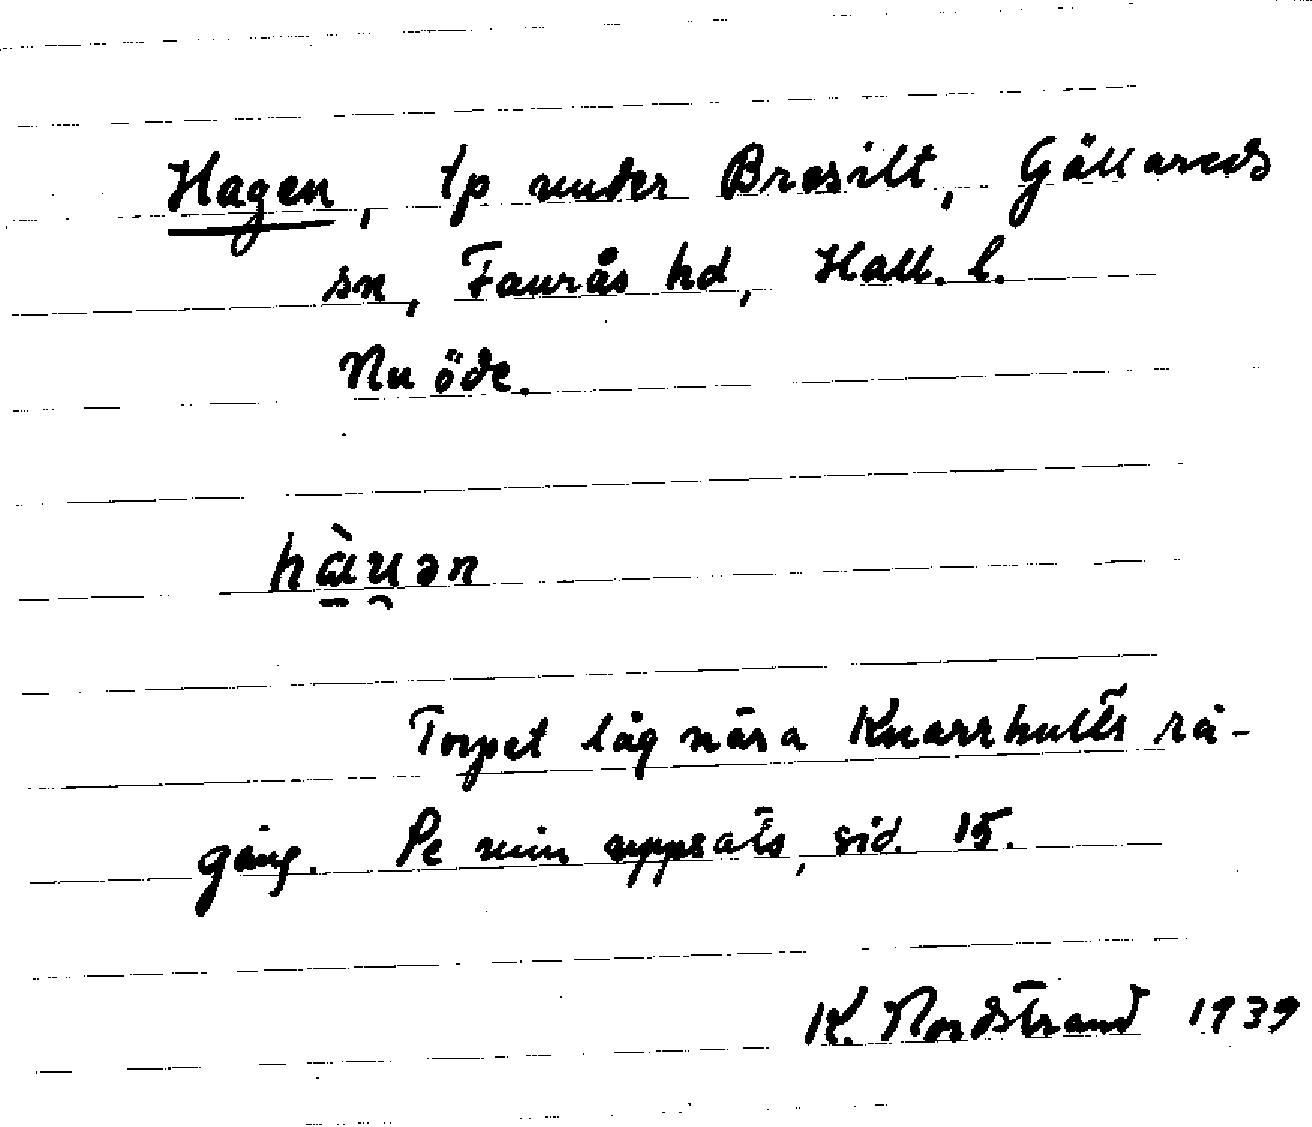 Hagen, tp under Bresilt, Gällareds
sn, Faurås hd, Hall. l.
Nu öde.
hà̱u̯ən
Torpet låg nära Knarrhults rå-
gång. Se min uppsats, sid. 15.
K. Nordstrand 1939